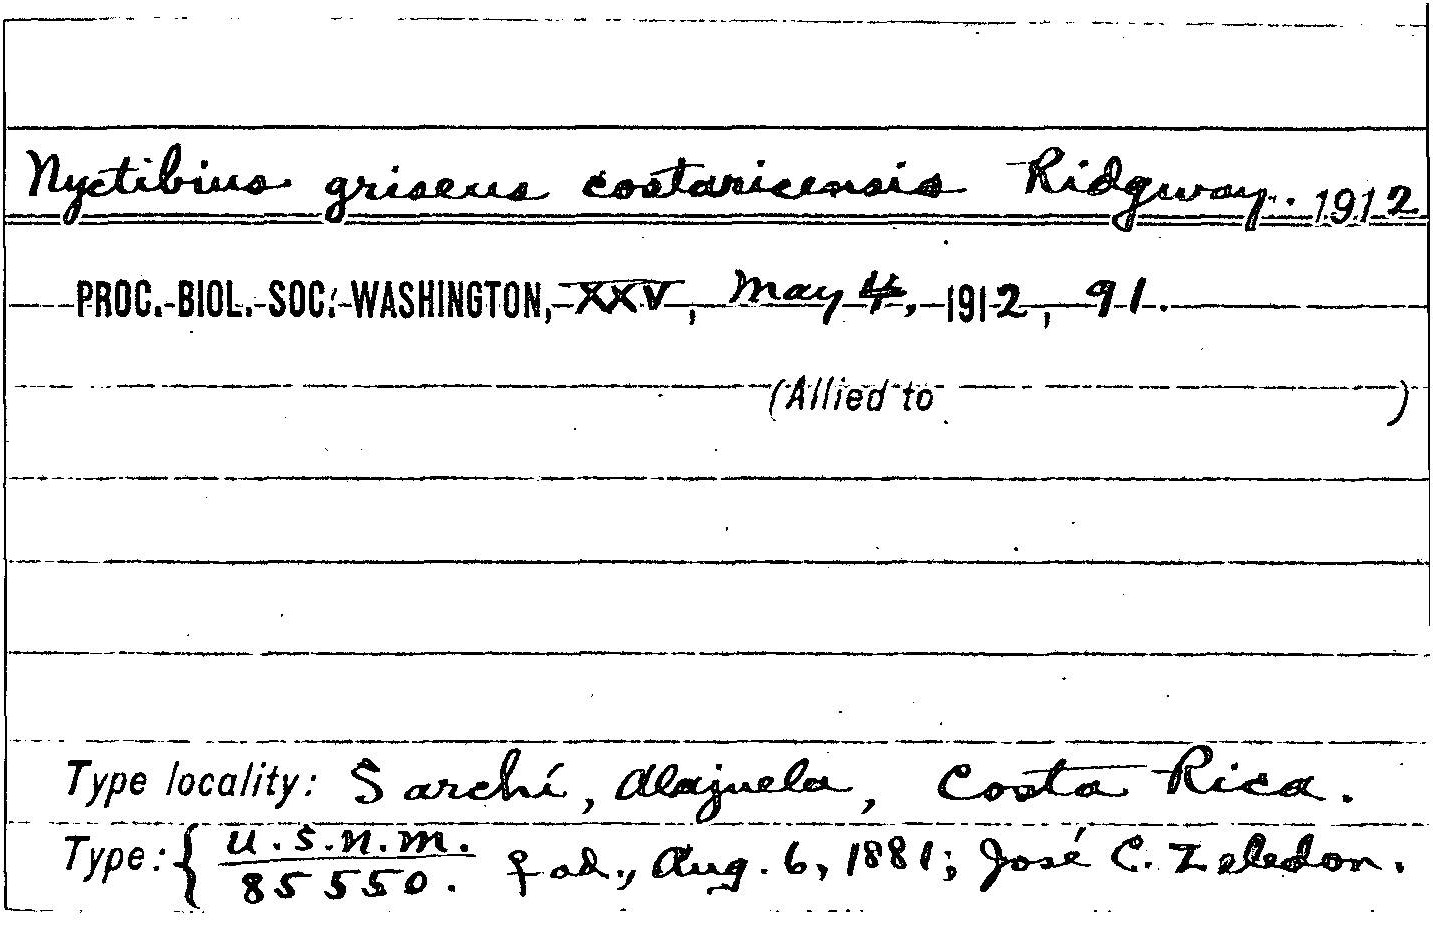 Nyctibius griseus costaricensis Ridgway. 1912
PROC. BIOL. SOC. WASHINGTON, XXV, May 4, 1912, 91.
(Allied to )
Type locality: Sarchí, Alajuela, Costa Rica.
Type: { U.S.N.M. ♀ ad., Aug. 6, 1881; José C. Zeledon.
85550.